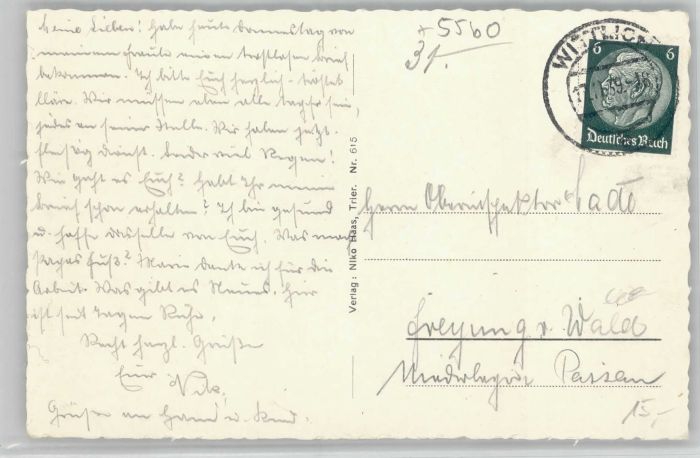 Meine Lieben! Habe heute Donnerstag von
meinem Fraule einen trostlosen Brief
bekommen. Ich bitte Euch herzlich - tröstet
Wir müssen eben alle tapfer sein
jedes an seiner Stelle. Wir haben jetzt
fleißig Dienst. Leider viel Regen!
Wie geht es Euch? Habt Ihr meinen
Brief schon erhalten? Ich bin gesund
u. hoffe dasselbe von Euch. Was macht
Papas Fuß? Marie danke ich für die
Arbeit. Was gibt es Neues. Hier
ist seit Tagen Ruhe.
Recht herzl. Grüße
Euer
Grüße an u.
Verlag: Niko Haas, Trier. Nr. 615
5560
31.
WITTLICH
6 6
Deutsches Reich
Herrn Oberinspektor
Freyung v. Wald
Niederbayern Passau
15,-